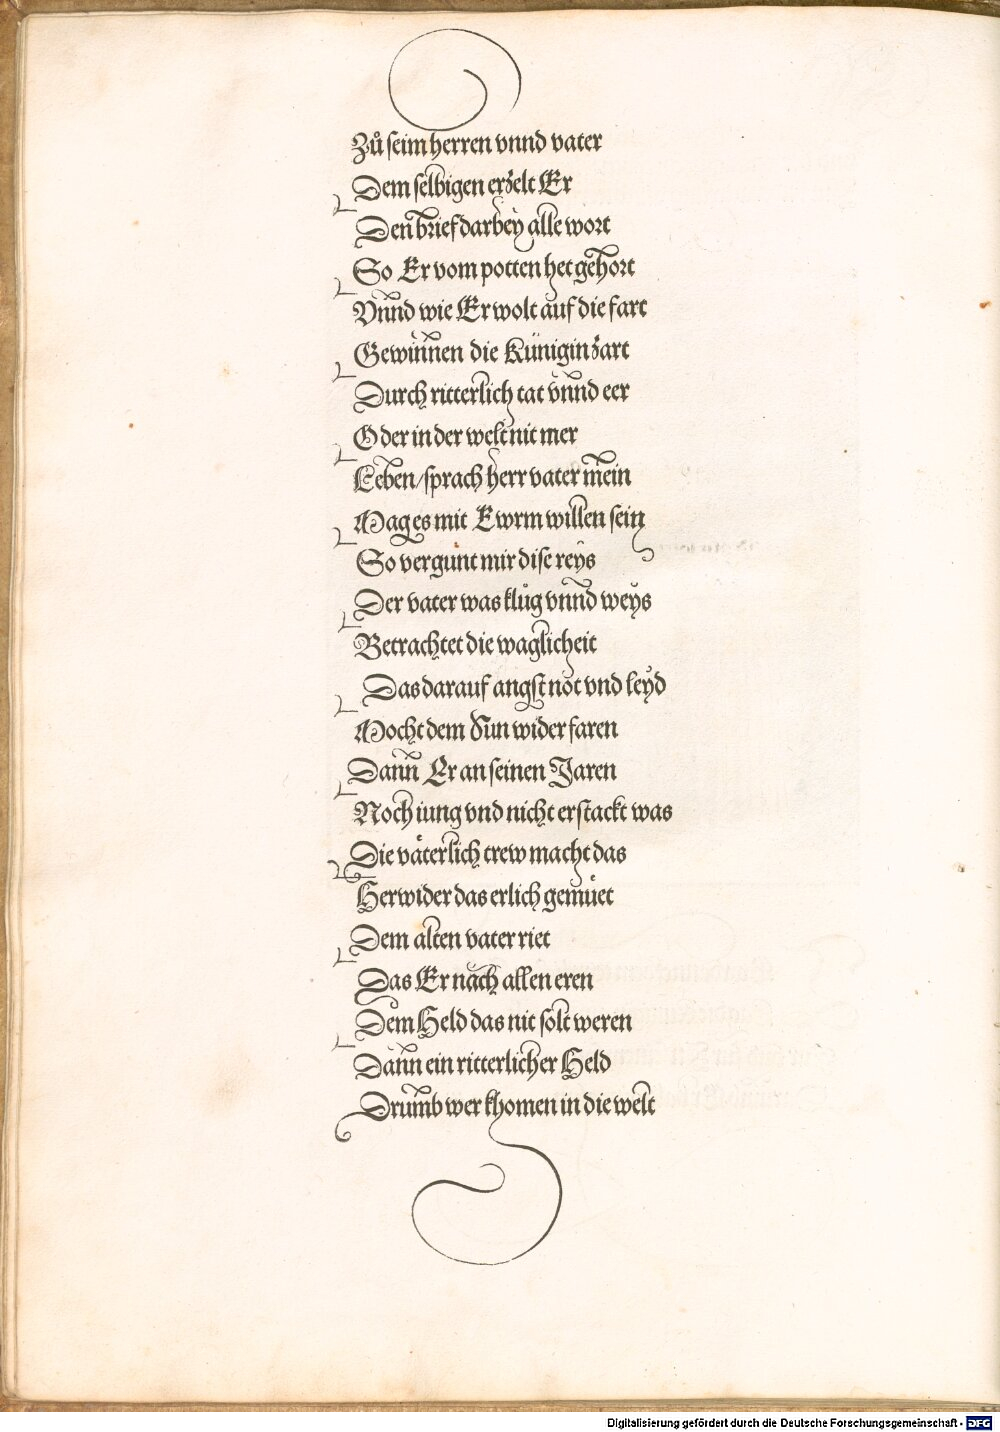 Zů seim herren vnnd vater
Dem selbigen erzelt Er
Den brief darbey alle wort
So Er vom potten het gehort
Vnnd wie Er wolt auf die fart
Gewinnen die Künigin zart
Durch ritterlich tat vnnd eer
Oder in der welt nit mer
Leben / sprach herr vater mein
Mag es mit Ewrm willen sein
So vergunt mir dise reÿs
Der vater was klůg vnnd weÿs
Betrachtet die waglicheit
Das darauf angst not vnd leÿd
Mocht dem Sun widerfaren
Dann Er an seinen Jaren
Noch iung vnd nicht erstackt was
Die väterlich trew macht das
Herwider das erlich gemüet
Dem alten vater riet
Das Er nach allen eren
Dem Held das nit solt weren
Dann ein ritterlicher Held
Drumb wer khomen in die welt
Digitalisierung gefördert durch die Deutsche Forschungsgemeinschaft - DFG